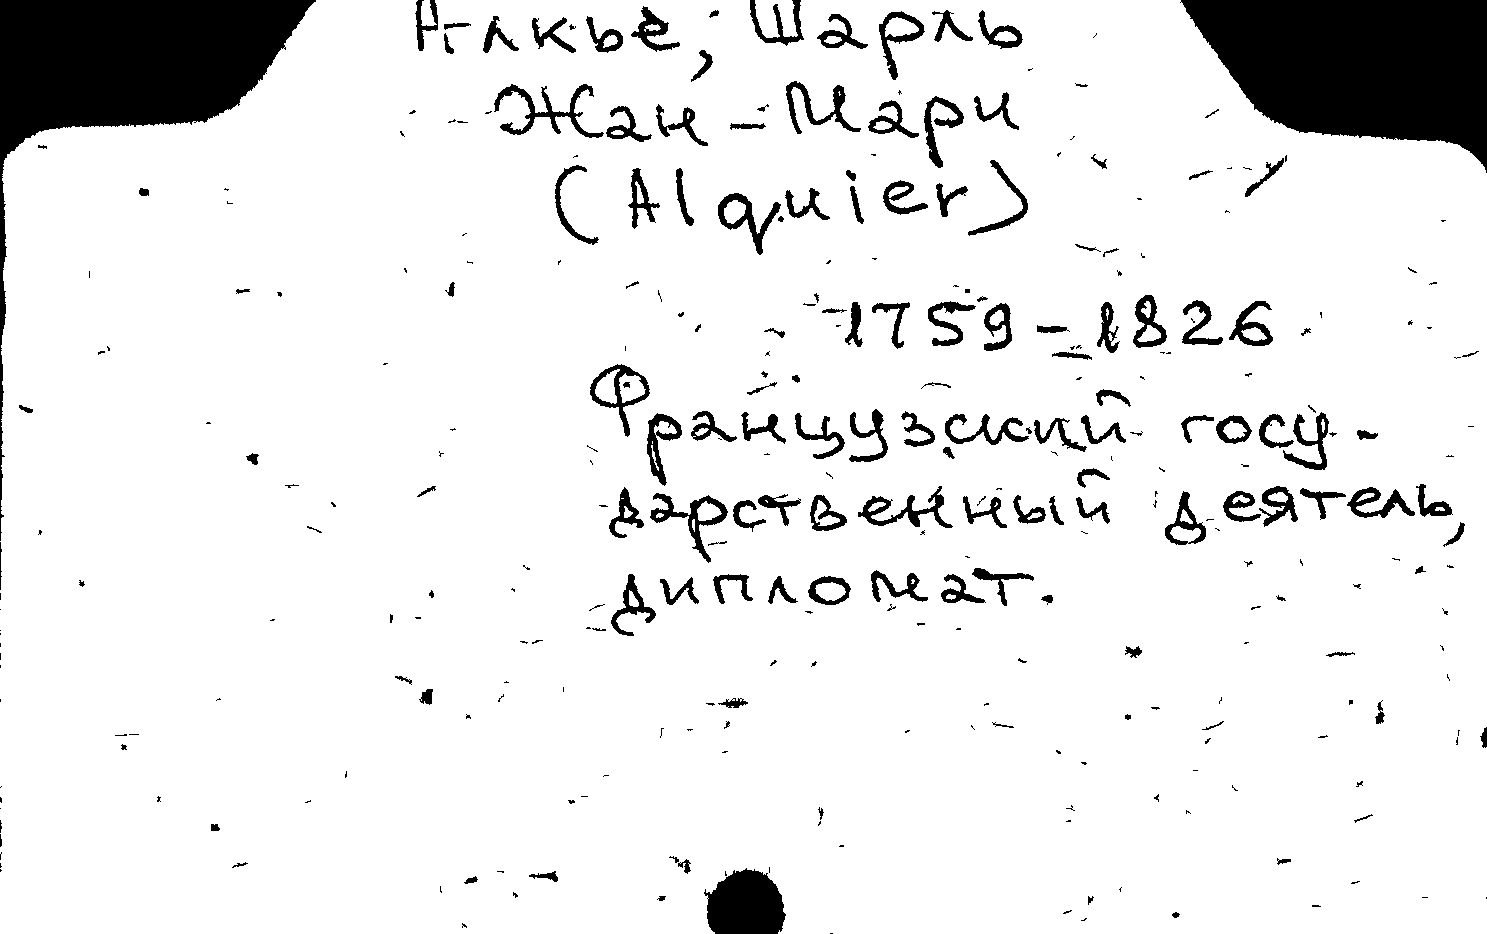 Алкье, Шарль
Жан-Мари
(Alquier)
1759-1826
Французский госу-
дарственный деятель,
дипломат.